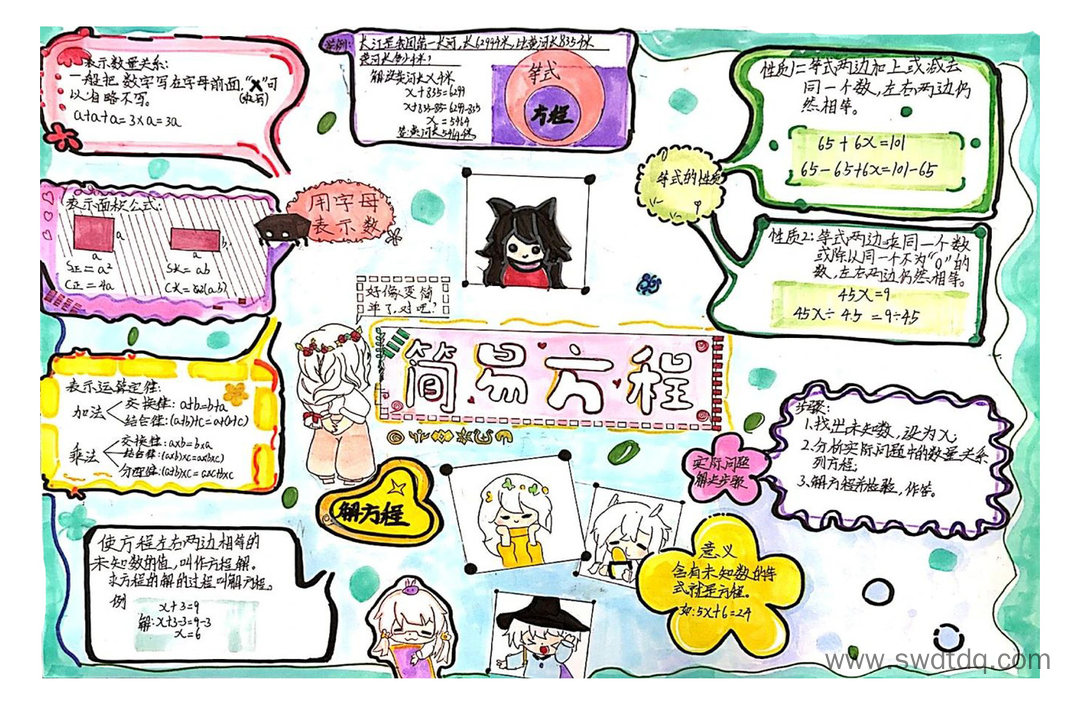 表示数量关系:
一般把数字写在字母前面,"×"可
以省略不写。
(或写)
a+a+a=3×a=3a
举例:
长江是我国第一长河,长6299千米,比黄河长835千米
黄河长多少千米?
解:设黄河长x千米
x+835=6299
x+835-835=6299-835
x=5464
答:黄河长5464千米
等式
方程
性质1:等式两边加上或减去
同一个数,左右两边仍
然相等。
65+6x=101
65-65+6x=101-65
等式的性质
性质2:等式两边乘同一个数
或除以同一个不为"0"的
数,左右两边仍然相等。
45x=9
45x÷45=9÷45
表示面积公式:
a
a
b
a
S正=a²
S长=ab
C正=4a
用字母
表示数
好像变简
单了,对吧!
简易方程
表示运算定律:
加法
交换律:a+b=b+a
结合律:(a+b)+c=a+(b+c)
乘法
交换律:a×b=b×a
结合律:(a×b)×c=a×(b×c)
分配律:(a+b)×c=a×c+b×c
步骤:
1.找出未知数,设为x;
2.分析实际问题中的数量关系
列方程;
3.解方程并检验,作答。
实际问题
解决步骤
解方程
使方程左右两边相等的
未知数的值,叫作方程解。
求方程的解的过程叫解方程。
例
x+3=9
解:x+3-3=9-3
x=6
意义
含有未知数的等
式就是方程。
如:5x+6=24
www.swdtdq.com